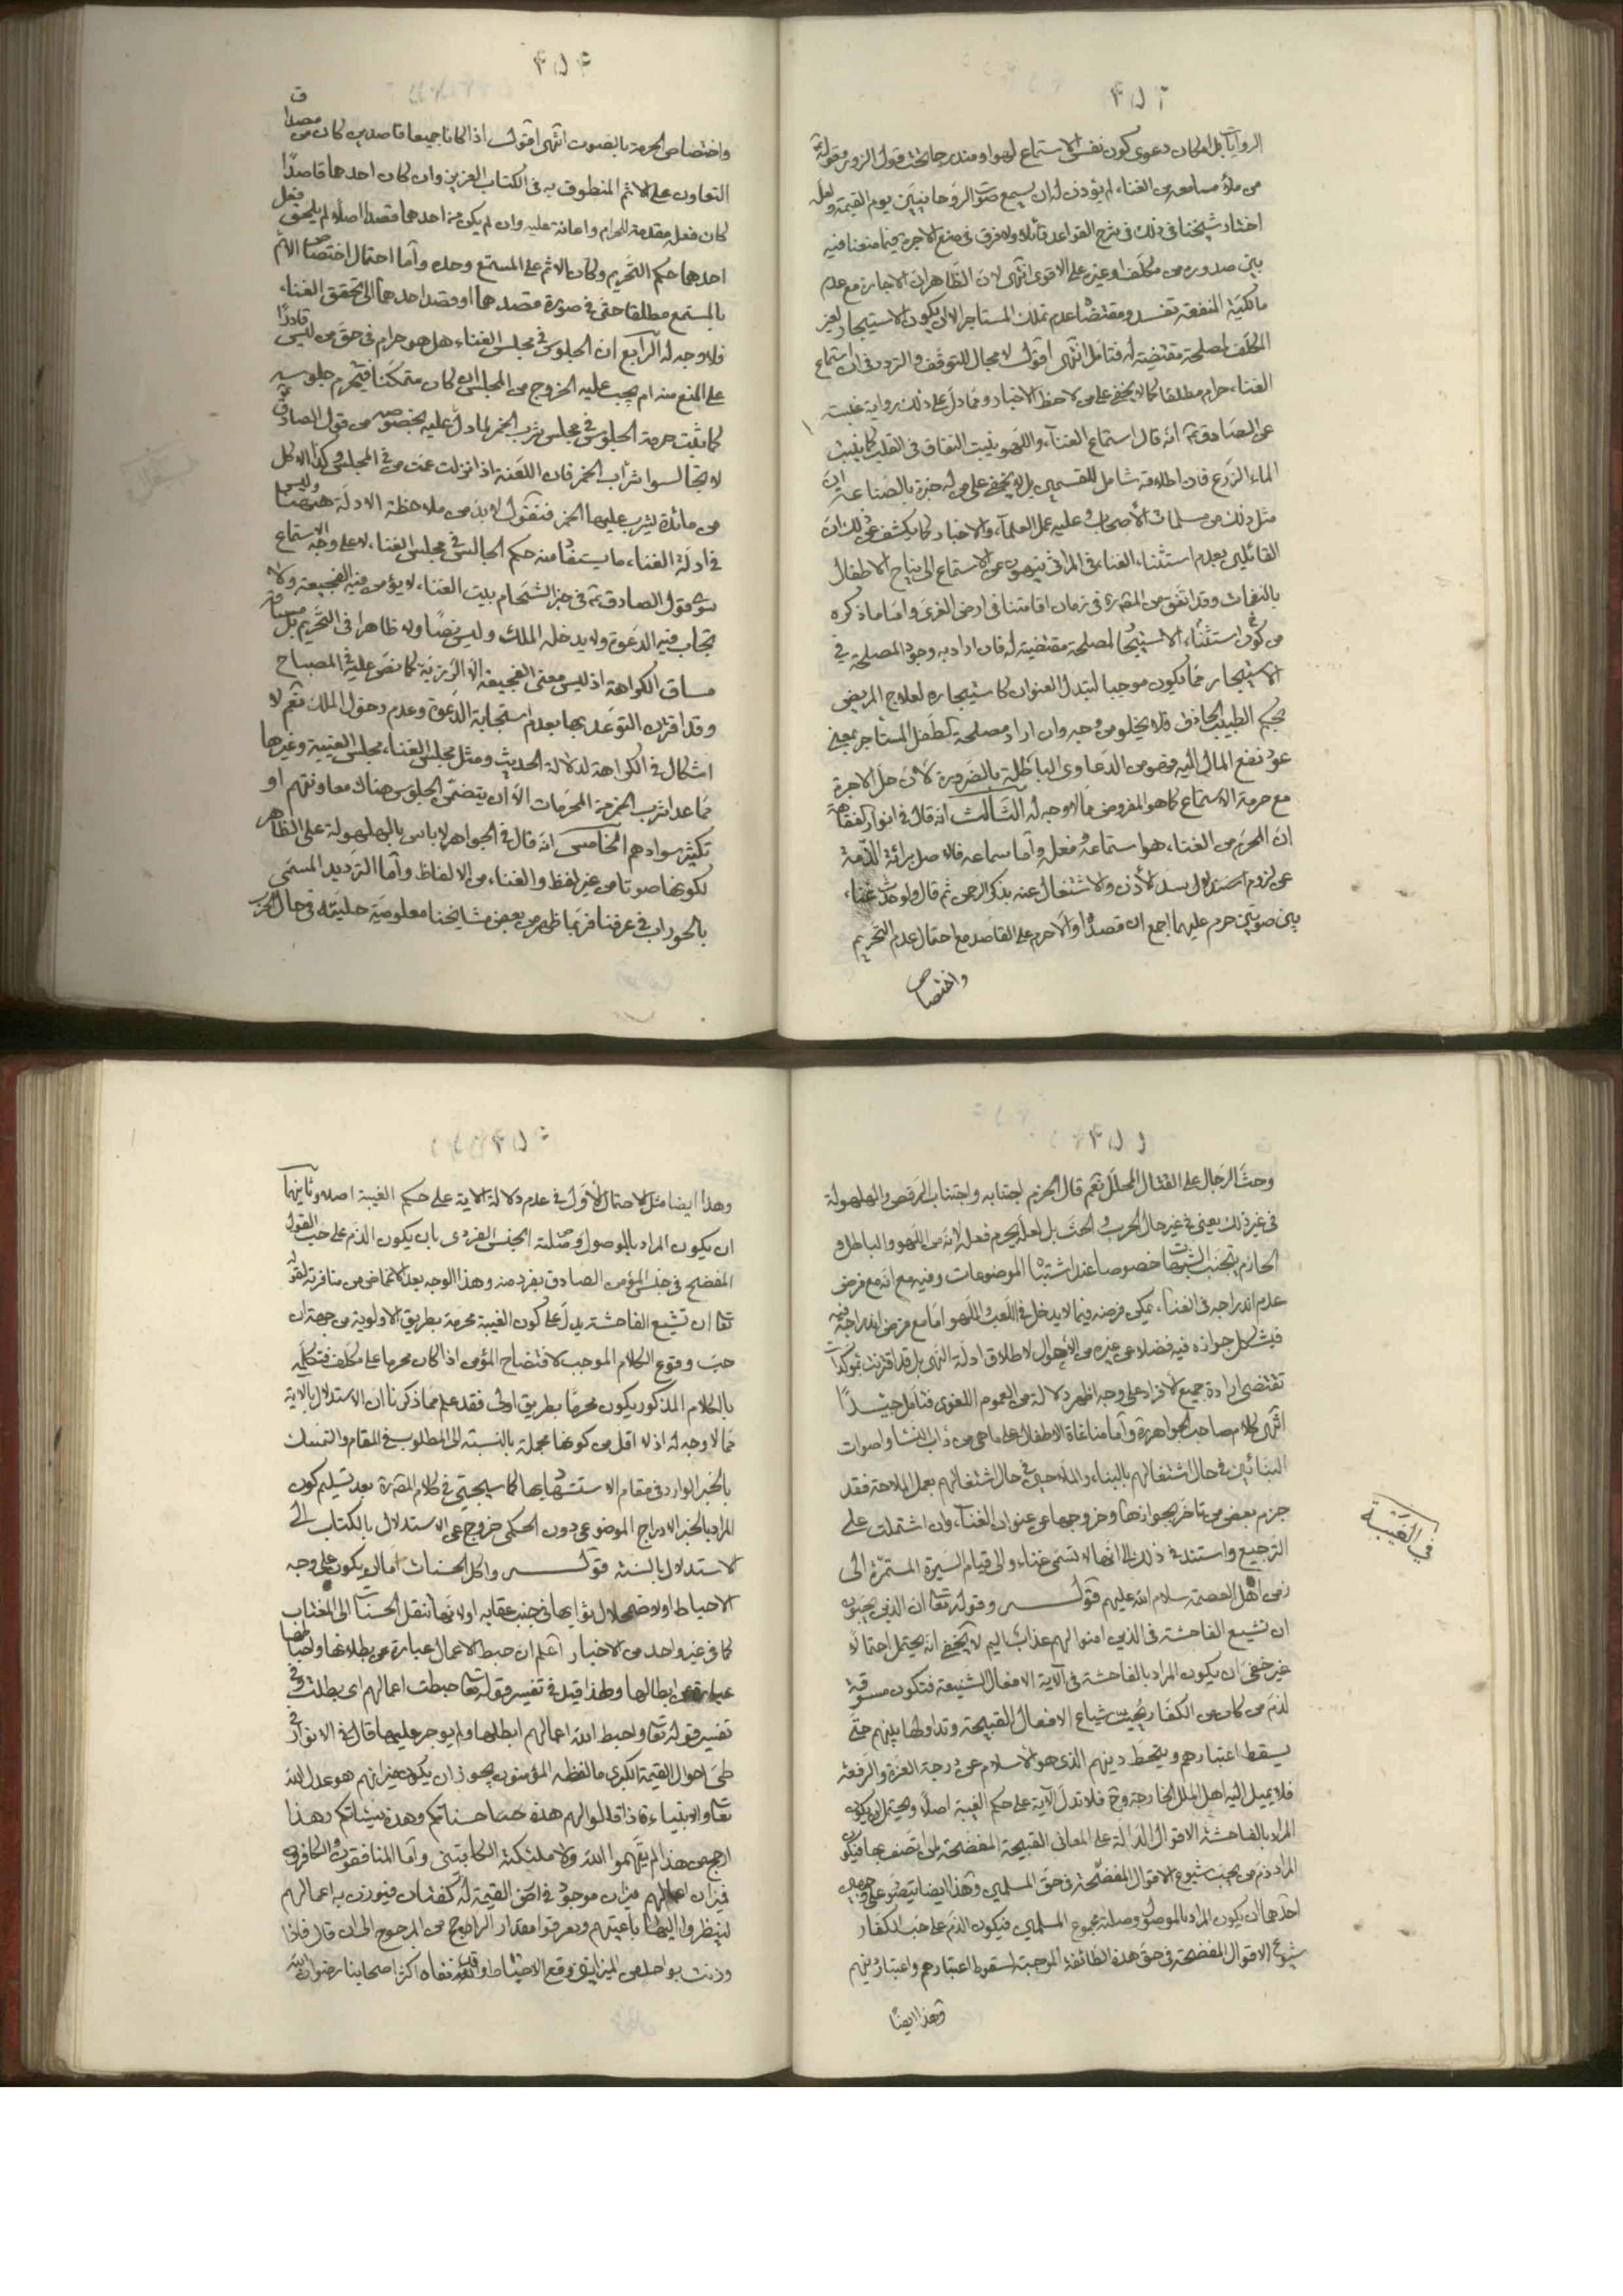 الروايات بل امكان دعوى كون نفس الاستماع لهوا ومندرجا تحت قول الزور وقوله
من ملأ مسامعه من الغناء لم يؤذن له ان يسمع صوت الروحانيين يوم القيمة ولعله
اختاره شيخنا في ذلك في شرح القواعد قائلا ولا فرق في منع الاجرة فيما منعنا فيه
بين صدوره من مكلف او غيره على الاقوى انتهى لان الظاهر ان الاجارة مع عدم
مالكية المنفعة تفسد ومقتضاه عدم تملك المستاجر الا ان يكون الاستيجار لغير
المكلف لمصلحة مقتضية له فتامل انتهى اقول لا مجال للتوقف والتردد في ان استماع
الغناء حرام مطلقا كما لا يخفى على من لاحظ الاخبار ومما دل على ذلك رواية عنبسة
عن الصادق انه قال استماع الغناء واللهو ينبت النفاق في القلب كما ينبت
الماء الزرع فان اطلاقه شامل للقسمين بل لا يخفى على من له خبرة بالصناعة ان
مثل ذلك من مسلمات الأصحاب وعليه عمل العلماء والاخبار كما يكشف عن ذلك ان
القائلين بعدم استثناء الغناء في المراثي ينهون عن الاستماع الى نياح الاطفال
بالنغمات وقد اتفق من المقرة في زمان اقامتنا في ارض الغرى واما ما ذكره
من كون استثناء الاستيجار لمصلحة مقتضية له فان اراد به وجود المصلحة في
الاستيجار مما يكون موجبا لتبدل العنوان كاستيجاره لعلاج المريض
بحكم الطبيب الحاذق فلا يخلو من وجه وان اراد مصلحة كطفل المستاجر بمعنى
عود نفع المال اليه فهو من الدعاوى الباطلة بالضرورة لأن حل الاجرة
مع حرمة الاستماع كما هو المفروض مما لا وجه له الثالث انه قال في انوار الفقاهة
ان المحرم من الغناء هو استماعه وفعله وآما سماعه فالاصل برائة الذمة
عن لزوم بسد الأذن والاشتغال عنه بذكر الرحمن ثم قال ولو حدث غناء
بين صوتين حرم عليهما اجمع ان قصدا والا حرم على القاصد مع احتمال عدم التحريم
واختصاص
واختصاص الحرمة بالصوت انتهى اقول اذا كانا جميعا قاصدين كان من مصداق
التعاون على الاثم المنطوق به في الكتاب العزيز وان كان احدهما قاصدا
كان فعله مقدمة للحرام واعانة عليه وان لم يكن من احدهما قصد اصلا لم يلحق فعل
احدهما حكم التحريم وكان الاثم على المستمع وحده وآما احتمال اختصاص الاثم
بالمستمع مطلقا حتى في صورة قصدهما او قصد احدهما الى تحقق الغناء
فلا وجه له الرابع ان الجلوس في مجلس الغناء هل هو حرام في حق من ليس قادرا
على المنع منه ام يجب عليه الخروج من المجلس ان كان متمكنا فيحرم جلوسه
كما ثبت حرمة الجلوس في مجلس شرب الخمر لما دل عليه بخصوصه من قول الصادق
لا تجالسوا شراب الخمر فان اللعنة اذا نزلت عمت من في المجلس وكذا الاكل
من مائدة يشرب عليها الخمر فنقول لا بد من ملاحظة الادلة هيهنا وليس
في ادلة الغناء ما يستفاد منه حكم الجالس في مجلس الغناء لا على وجه الاستماع
سوى قول الصادق في خبر الشحام بيت الغناء لا يؤمن فيه الفجيعة ولا
تجاب فيه الدعوة ولا يدخله الملك وليس نصا ولا ظاهرا في التحريم بل مساقه
مساق الكراهة اذ ليس معنى الفجيعة الا الرزية كما نص عليه في المصباح
وقد اقترن التوعد بها بعدم استجابة الدعوة وعدم دخول الملك نعم لا
اشكال في الكراهة لدلالة الحديث ومثل مجلس الغناء مجلس الغيبة وغيرها
مما عدا شرب الخمر من المحرمات الا ان يتضمن الجلوس هناك معاونتهم او
تكثير سوادهم الخامس انه قال في الجواهر لا باس بالهلهولة على الظاهر
لكونها صوتا من غير لفظ والغناء من الالفاظ وآما الترديد المسمى
بالحوراب في عرفنا فربما ظهر من بعض مشايخنا معلومية حليته في حال الحرب
وحث الرجال على القتال المحلل نعم قال الحزم اجتنابه واجتناب الرقص والهلهولة
في غير ذلك يعنى في غير حال الحرب والحث بل لعله يحرم فعله لانه من اللهو والباطل و
الحازم يتجنب الشبهات خصوصا عند اشتباه الموضوعات وفيه مع انه مع فرض
عدم اندراجه في الغناء يمكن فرضه فيما لا يدخل في اللعب واللهو اما مع فرض اندراجه فيه
فيشكل جوازه فيه فضلا عن غيره من الأحوال لاطلاق ادلة النهى بل قد اقترنت بموكدات
تقتضى ارادة جميع الافراد على وجه اظهر دلالة من العموم اللغوى فتامل جيدا
انتهى كلام صاحب الجواهر وآما مناغاة الاطفال على ما هي من داب النساء واصوات
البنائين في حال اشتغالهم بالبناء والملاحين في حال اشتغالهم بعمل الملاحة فقد
جزم بعض من تاخر بجوازها وخروجها عن عنوان الغناء وان اشتملت على
الترجيع واستند في ذلك الى انها لا تسمى غناء والى قيام السيرة المستمرة الى
زمن اهل العصمة سلام الله عليهم قوله وقوله تعا ان الذين يحبون
ان تشيع الفاحشة في الذين امنوا لهم عذاب اليم لا يخفى انه يحتمل احتمالا
غير خفى ان يكون المراد بالفاحشة في الآية الافعال الشنيعة فتكون مسوقة
لذم من كان من الكفار يحب شياع الافعال القبيحة وتداولها بينهم حتى
يسقط اعتبارهم وينحط دينهم الذى هو الاسلام عن درجة العزة والرفعة
فلا يميل اليه اهل الملل الخارجة وح فلا تدل الآية على حكم الغيبة اصلا ويحتمل ان يكون
المراد بالفاحشة الاقوال الدالة على المعانى القبيحة المفضحة لمن اتصف بها فيكون
المراد ذم من يحب شيوع الاقوال المفضحة في حق المسلمين وهذا ايضا يتصور على وجهين
احدهما ان يكون المراد بالموصول وصلته مجموع المسلمين فيكون الذم على حب الكفار
شيوع الاقوال المفضحة في حق هذه الطائفة الموجبة لسقوط اعتبارهم واعتبار دينهم
وهذا ايضا
في الغيبة
وهذا ايضا مثل الاحتمال الأول في عدم دلالة الاية على حكم الغيبة اصلا وثانيهما
ان يكون المراد بالموصول وصلته الجنس الفردى بان يكون الذم على حب القول
المفضح في جنس المؤمن الصادق بفرد منه وهذا الوجه بعد الاغماض من منافرته لقوله
تعا ان تشيع الفاحشة يدل على كون الغيبة محرمة بطريق الاولوية من جهة ان
حب وقوع الكلام الموجب لافتضاح المؤمن اذا كان محرما على مكلف فتكلمه
بالكلام المذكور يكون محرما بطريق اولى فقد علم مما ذكرنا ان الاستدلال بالاية
مما لا وجه له اذ لا اقل من كونها مجملة بالنسبة الى المطلوب في المقام والتمسك
بالخبر الوارد في مقام الاستشهاد بها كما سيجئ في كلام المص بعد تسليم كون
المراد بالخبر الادراج الموضوعى دون الحكمى خروج عن الاستدلال بالكتاب الى
الاستدلال بالسنة قوله واكل الحسنات اما ان يكون على وجه
الاحباط او لاضمحلال ثوابها في جنب عقابه او لانها تنقل الحسنات الى المغتاب
كما في غير واحد من الاخبار آعلم ان حبط الاعمال عبارة عن بطلانها واحباطها
عبارة عن ابطالها ولهذا قيل في تفسير قوله تعا حبطت اعمالهم اى بطلت وفي
تفسير قوله تعا واحبط الله اعمالهم ابطلها ولم يوجر عليها قال في الانوار في
طى احوال القيمة الكبرى ما لفظه المؤمنون يجوز ان يكون ميزانهم هو عدل الله
تعا والانبياء فاذا قالوا لهم هذه حسناتكم وهذه سيئاتكم وهذا
ارجح من هذا لم يتهموا الله ولا ملئكته الكاتبين وآما المنافقون والكافرون
فميزان اعمالهم ميزان موجود في ارض القيمة له كفتان فيوزن به اعمالهم
لينظروا اليها باعينهم ويعرفوا مقدار الراجح من المرجوح الى ان قال فاذا
وزنت بواحد من الميزانين وقع الاحباط وقد نفاه اكثر اصحابنا رضوان الله